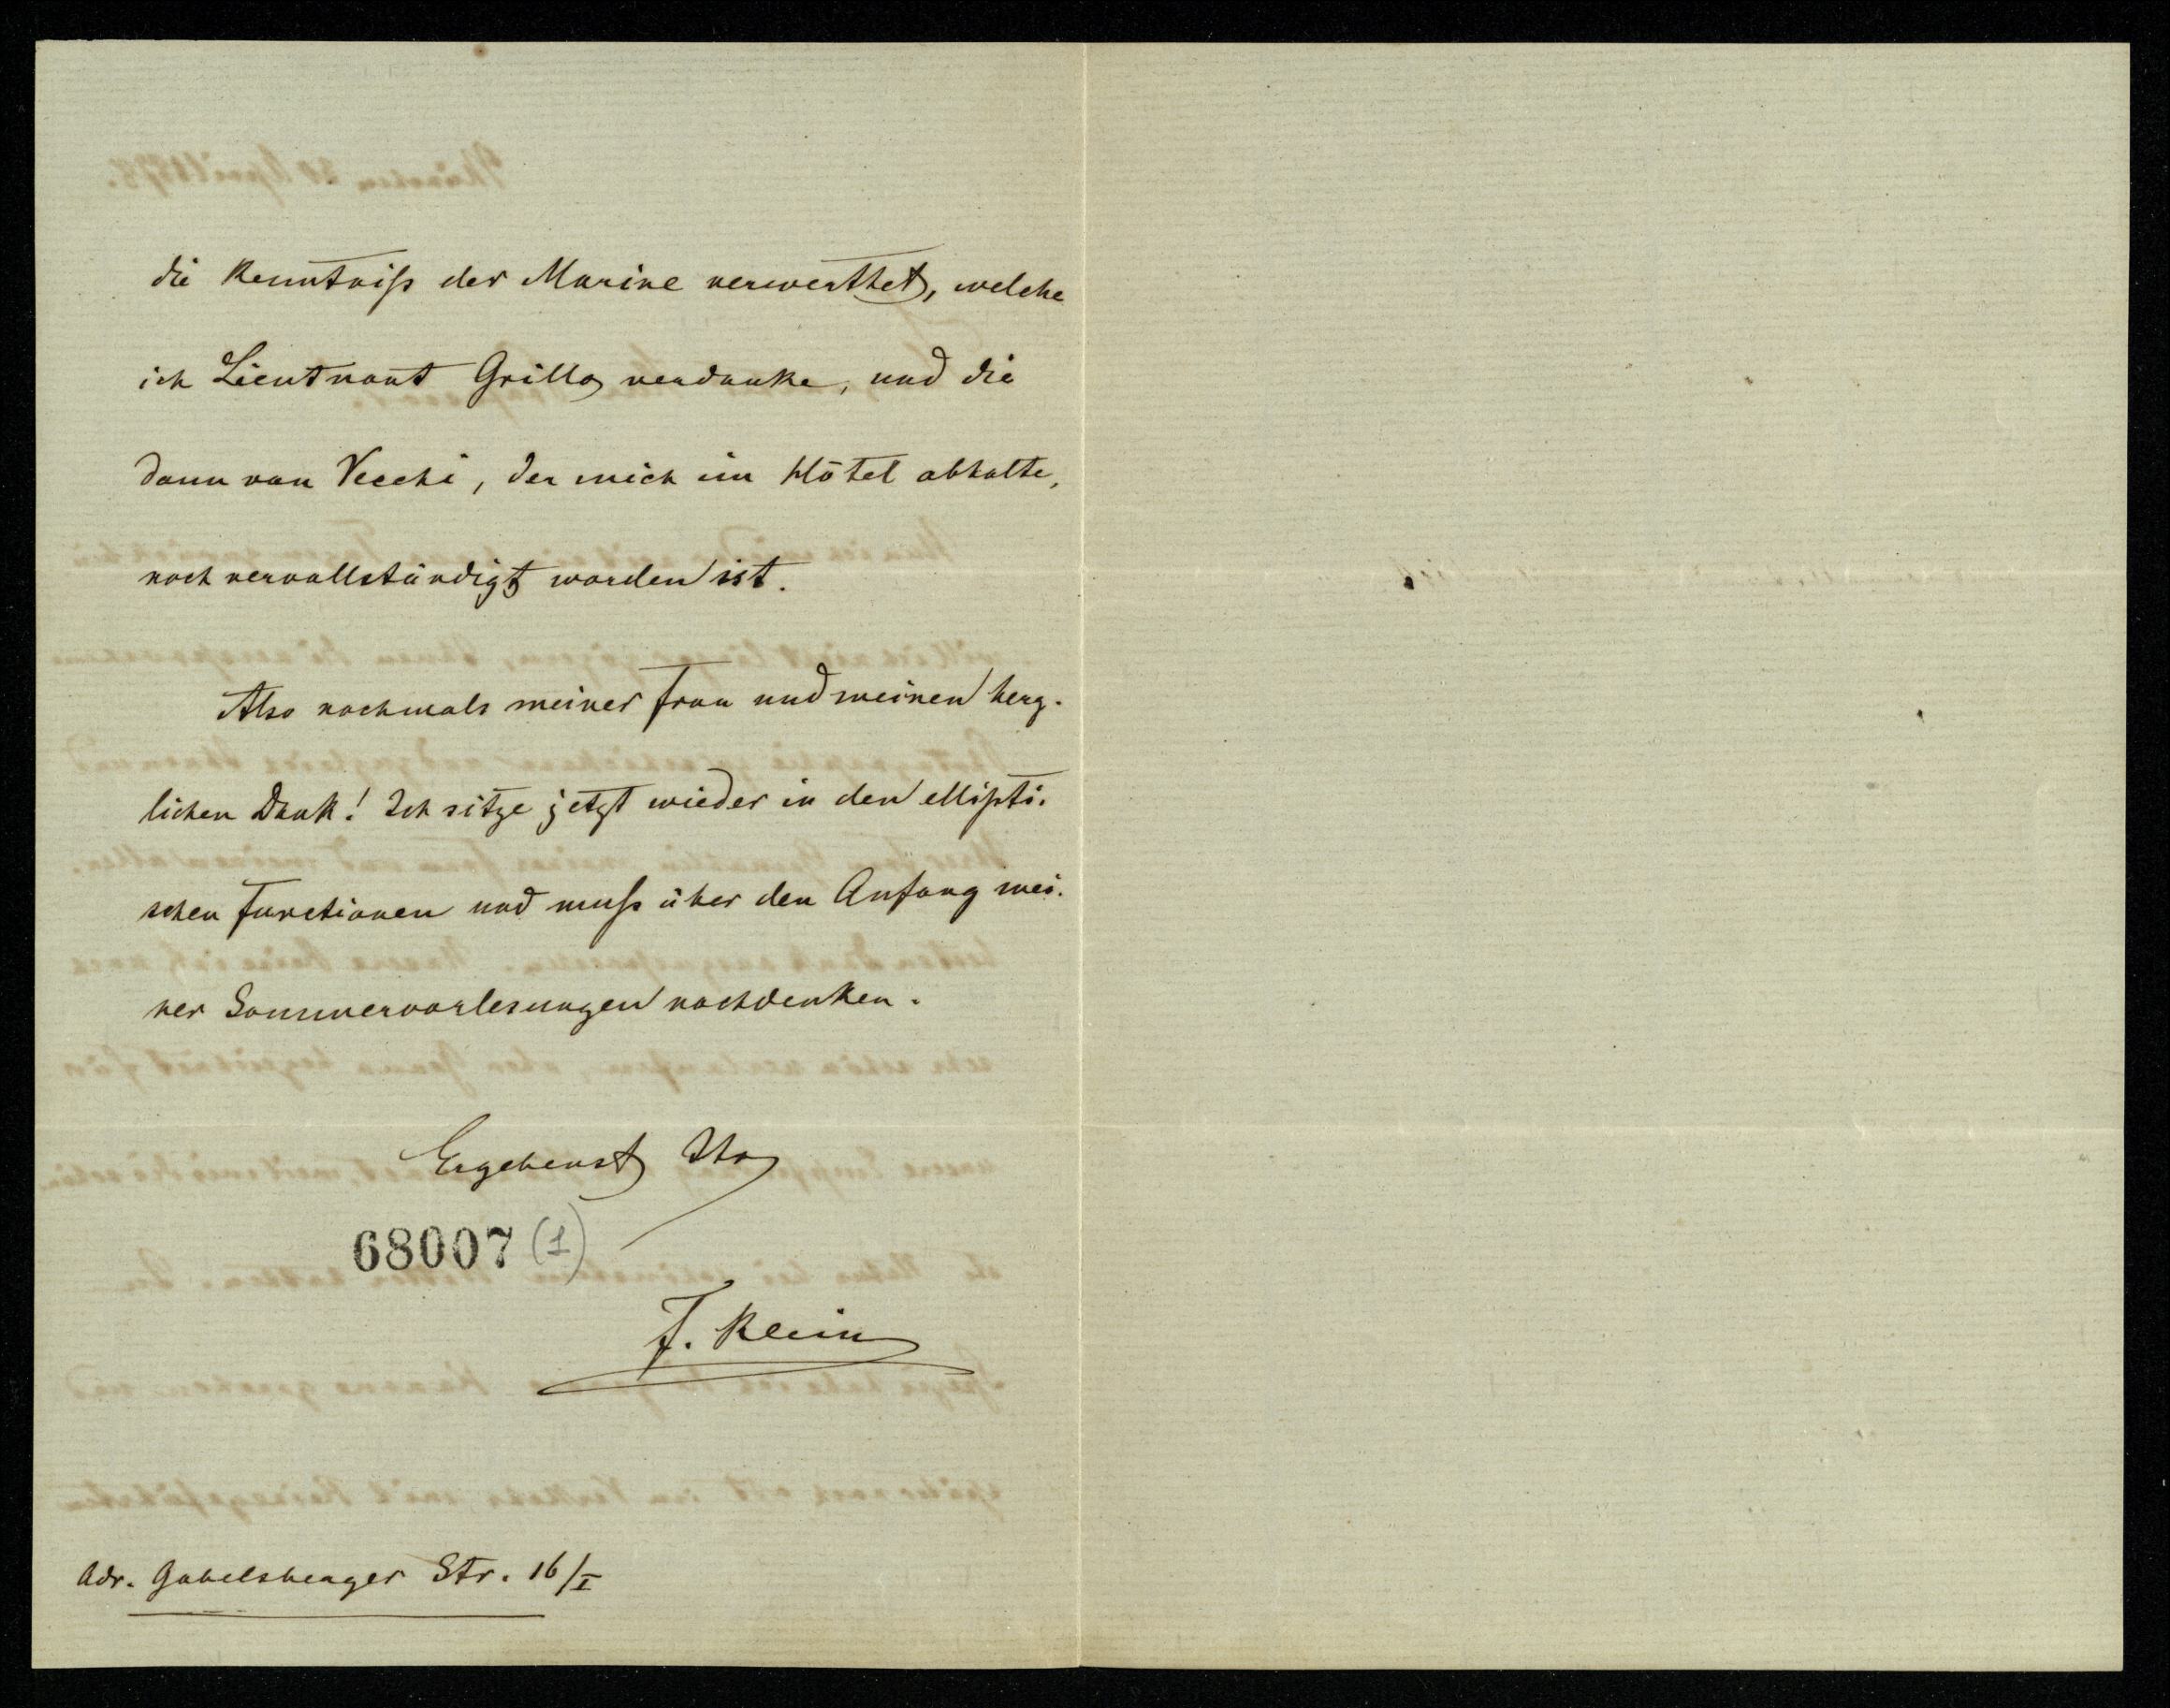 die Kenntniss der Marine verwerthet, welche
ich Lieutnant Grillo verdanke, und die
dann von Vecchi, der mich im Hôtel abholte,
noch vervollständigt worden ist.
Also nochmals meiner Frau und meinen herz-
lichen Dank! Ich sitze jetzt wieder in den ellipti-
schen Functionen und muss über den Anfang mei-
ner Sommervorlesungen nachdenken.
Ergebenst Ihr
68007 (1)
F. Klein
Adr. Gabelsberger Str. 16/I